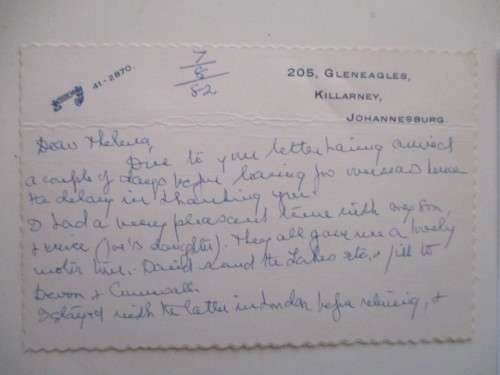 41-2870.
7
8
52
205, GLENEAGLES,
KILLARNEY,
JOHANNESBURG
Dear Thelma,
Due to your letter having arrived
a couple of days before leaving for overseas hence
the delay in thanking you.
I had a very pleasant time with my son,
& niece (Joe's daughter). They all gave me a lovely
motor tour. David around the Lakes etc, & Jill to
Devon & Cornwall.
I stayed with the latter in London before returning, &